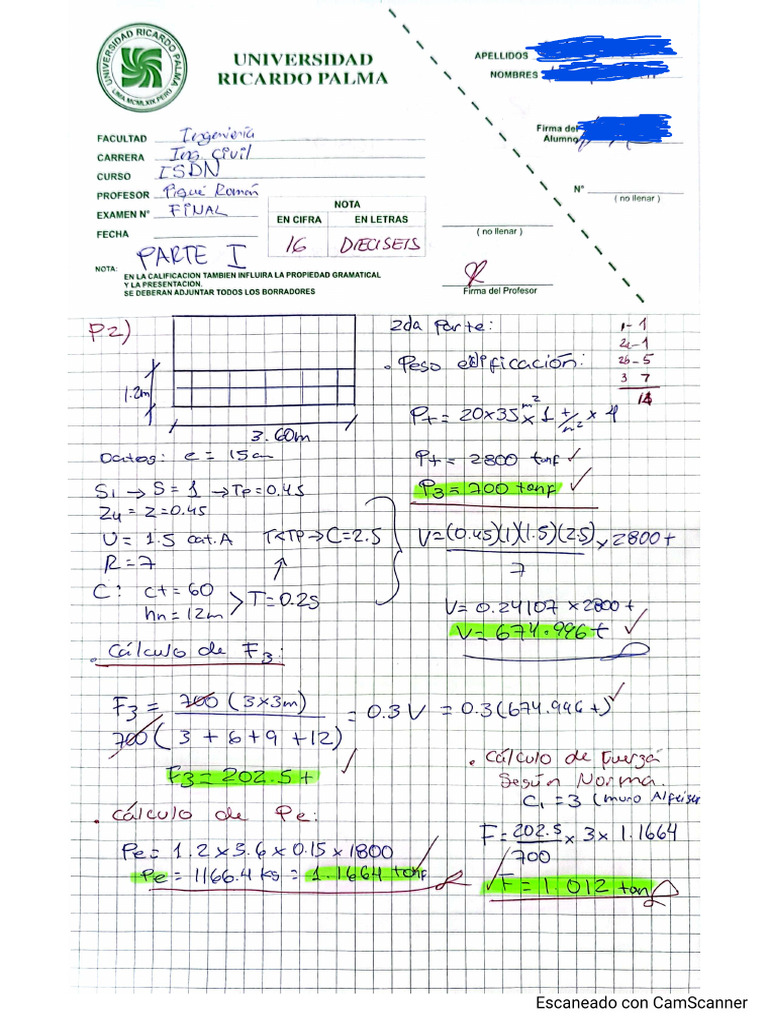 UNIVERSIDAD RICARDO PALMA
LIMA MCMLXIX PERÚ
UNIVERSIDAD
RICARDO PALMA
APELLIDOS
NOMBRES
Firma del
Alumno
N°
( no llenar )
FACULTAD Ingeniería
CARRERA Ing. Civil
CURSO ISDN
PROFESOR Piqué Román
EXAMEN N° FINAL
FECHA
PARTE I
NOTA
EN CIFRA EN LETRAS
16 DIECISEIS
( no llenar )
Firma del Profesor
NOTA:
EN LA CALIFICACION TAMBIEN INFLUIRA LA PROPIEDAD GRAMATICAL
Y LA PRESENTACION.
SE DEBERAN ADJUNTAR TODOS LOS BORRADORES
P2)
1.2m
3.60m
Datos: e = 15cm
S1 → S = 1 → Tp = 0.4S
Z4 = Z = 0.45
U = 1.5 cat. A T<TP → C = 2.5
R = 7
C: ct = 60
hn = 12m > T = 0.2S
• Cálculo de F3:
F3 = 700 (3x3m) / 700 (3 + 6 + 9 + 12) = 0.3 V = 0.3 (674.996 t)
F3 = 202.5 t
• Cálculo de Pe:
Pe = 1.2 x 3.6 x 0.15 x 1800
Pe = 1166.4 kg = 1.1664 tonf
2da Parte:
1 - 1
2a - 1
2b - 5
3 7
14
• Peso edificación:
Pt = 20x35 m² x 1 t/m² x 4
Pt = 2800 tonf
P3 = 700 tonf
V = (0.45)(1)(1.5)(2.5) / 7 x 2800 t
V = 0.24107 x 2800 t
V = 674.996 t
• Cálculo de Fuerza
Según Norma.
C1 = 3 (muro Alfeizer
F = 202.5 / 700 x 3 x 1.1664
F = 1.012 ton
Escaneado con CamScanner